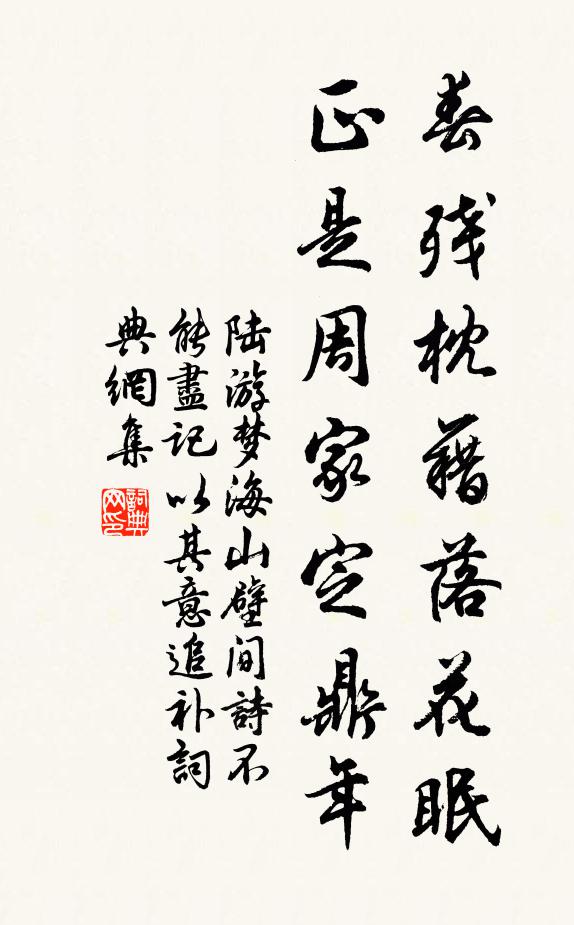 春残枕藉落花眠
正是周家定鼎年
陆游梦海山壁间詩不
能盡记以其意追补詞
典網集
詞典网印